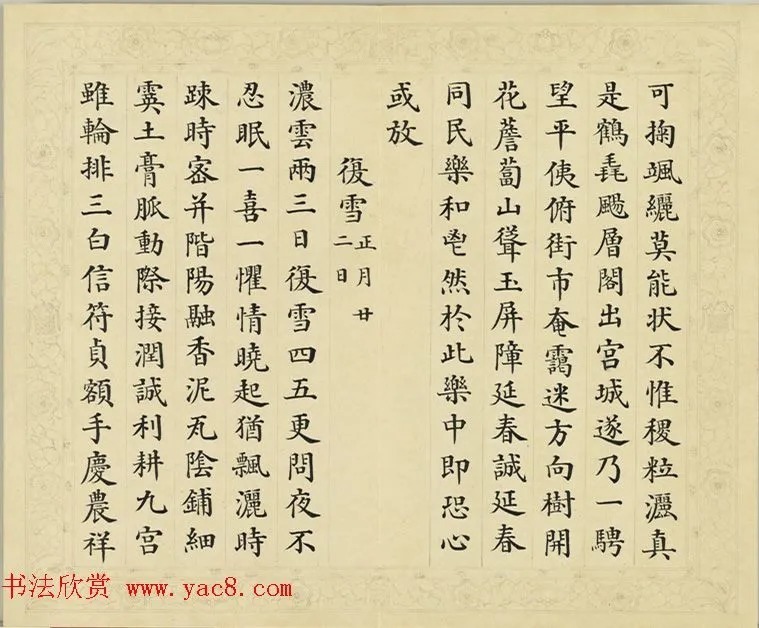 可掬颯纚莫能状不惟稷粒灑真
是鶴毳颺層閣出宮城遂乃一騁
望平侇俯街市奄靄迷方向樹開
花薝蔔山聳玉屏障延春誠延春
同民樂和鬯然於此樂中即恐心
或放
復雪 正月廿
二日
濃雲兩三日復雪四五更問夜不
忍眠一喜一懼情曉起猶飄灑時
踈時密并階陽融香泥瓦陰鋪細
霙土膏脈動際接潤誠利耕九宮
雖輪排三白信符貞額手慶農祥
书法欣赏 www.yac8.com